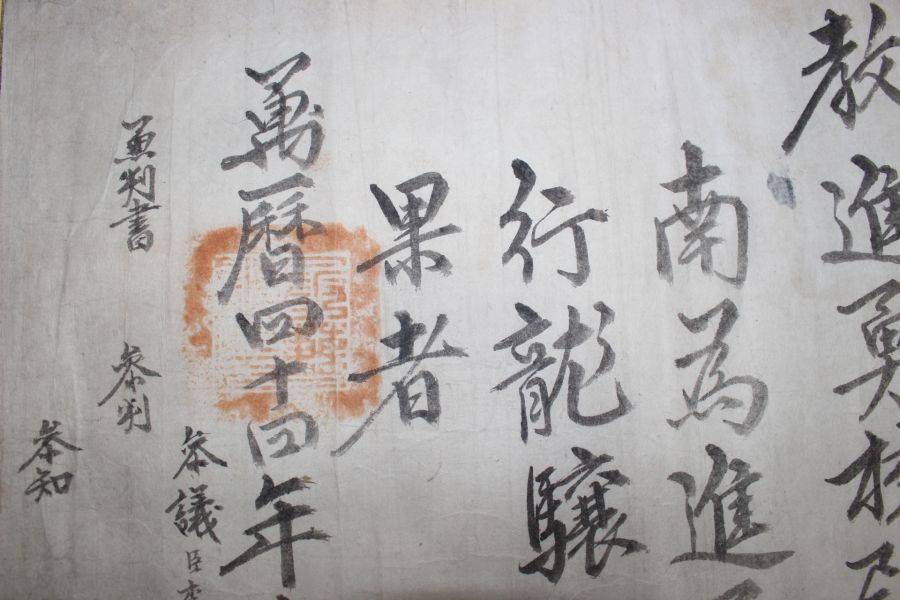 教進勇校
南為進
行龍驤
果者
萬曆四十四年
參議臣李
兼判書 參判
參知